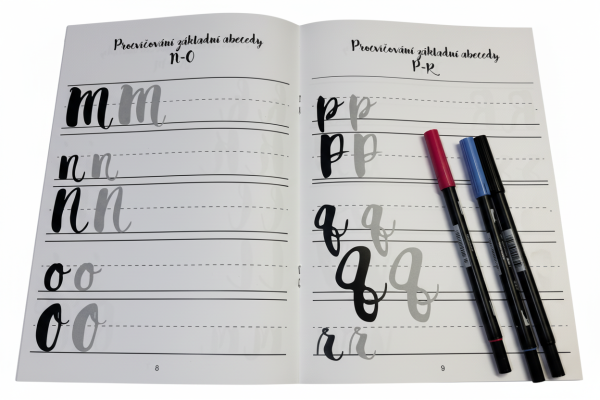 Procvičování základní abecedy
N-O
m m
n n
n n
o o
o o
8
Procvičování základní abecedy
P-R
p p
p p
q q
q q
r r
9